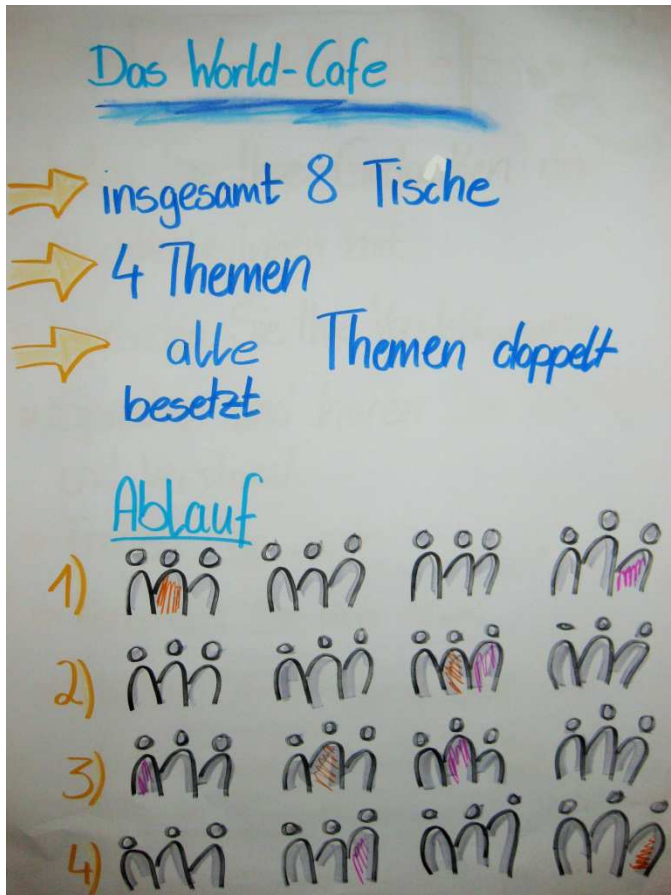 Das World-Cafe
insgesamt 8 Tische
4 Themen
alle Themen doppelt
besetzt
Ablauf
1)
2)
3)
4)